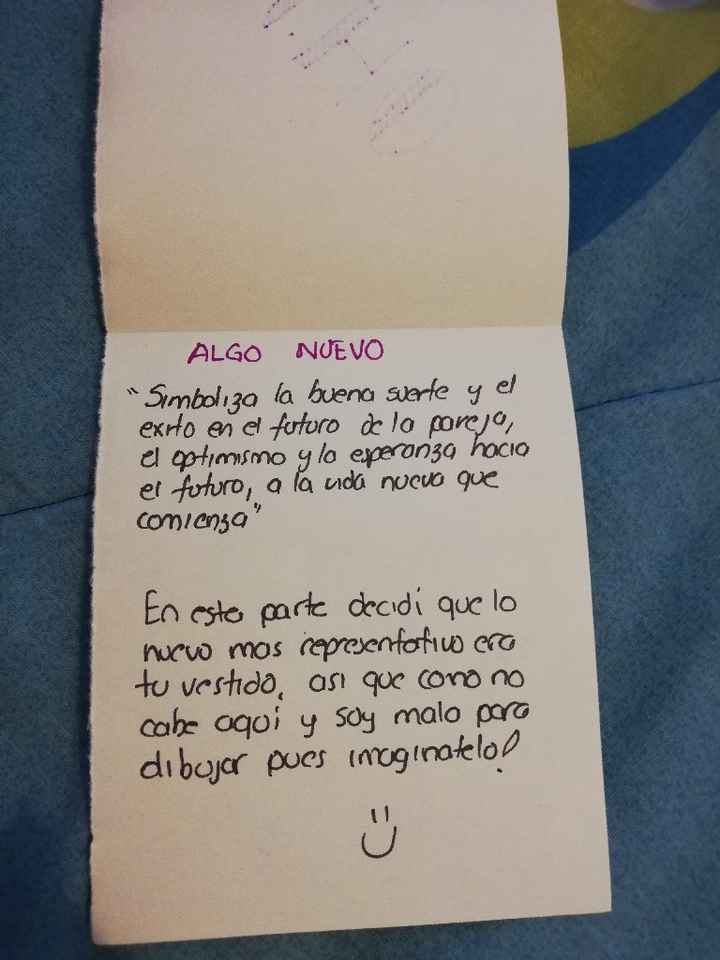 ALGO NUEVO
"Simboliza la buena suerte y el
exito en el futuro de la pareja,
el optimismo y la esperanza hacia
el futuro, a la vida nueva que
comienza"
En esta parte decidí que lo
nuevo mas representativo era
tu vestido, asi que como no
cabe aqui y soy malo para
dibujar pues imaginatelo!